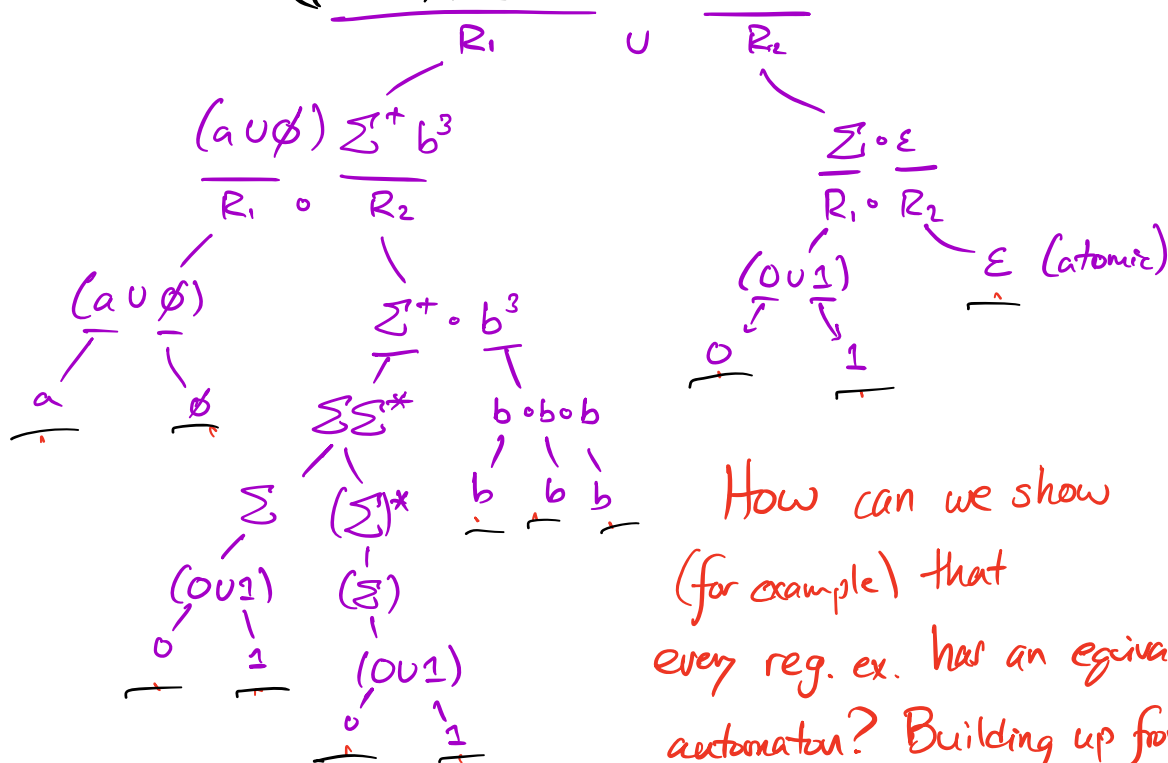 R₁ ∪ R₂
(a ∪ ∅) Σ⁺ b³
Σ ∘ ε
R₁ ∘ R₂
R₁ ∘ R₂
(a ∪ ∅)
Σ⁺ ∘ b³
(0 ∪ 1)
ε (atomic)
a
∅
ΣΣ*
b ∘ b ∘ b
0
1
Σ
(Σ)*
b
b
b
(0 ∪ 1)
(Σ)
0
1
(0 ∪ 1)
0
1
How can we show
(for example) that
every reg. ex. has an equiva
automaton? Building up fro